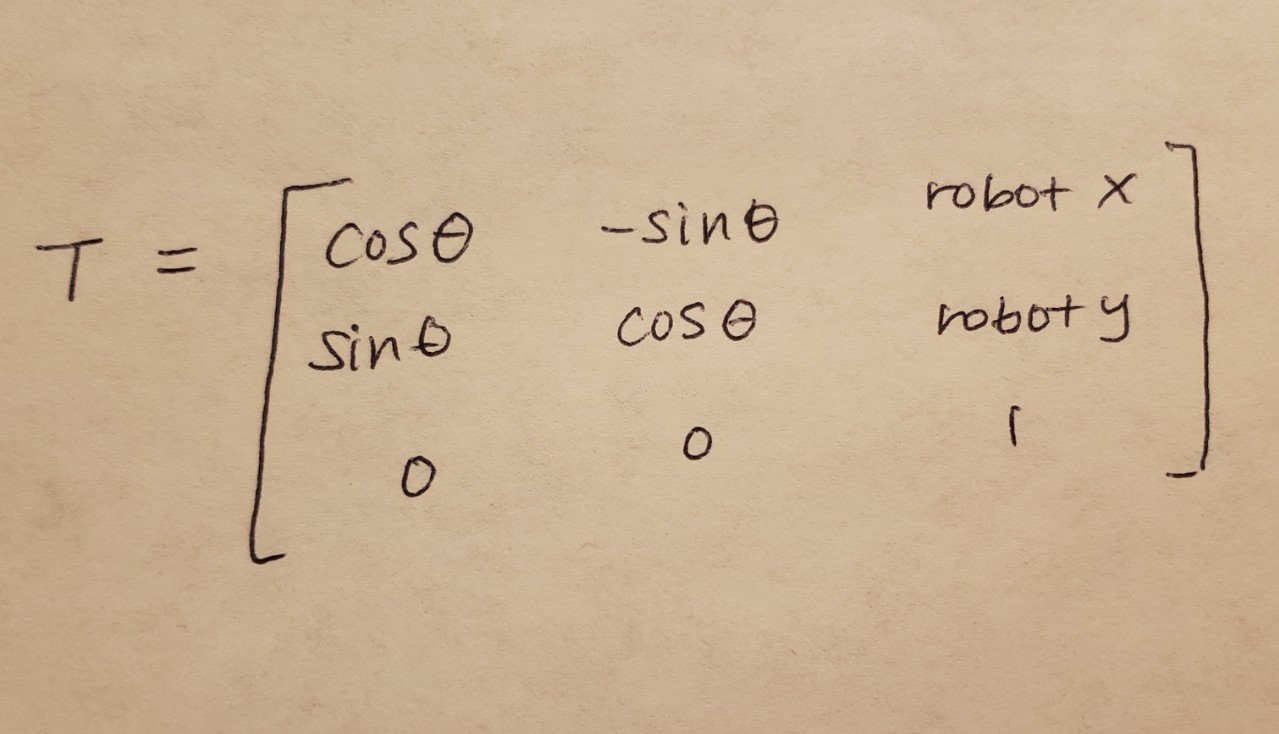 T = [ cosθ -sinθ robot x
sinθ cosθ robot y
0 0 1 ]